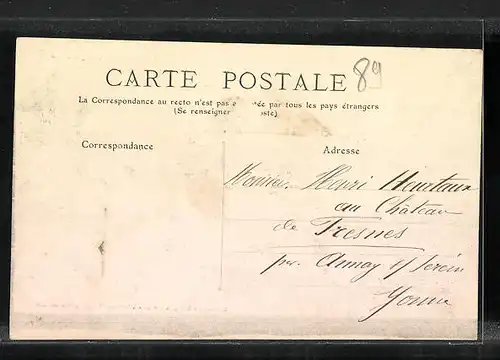 89
CARTE POSTALE
La Correspondance au recto n'est pas e ée par tous les pays étrangers
(Se renseigner ste)
Correspondance
Adresse
Monsieur Henri Heurtaux
au Château
de Fresnes
par Annay s/ Serein
Yonne